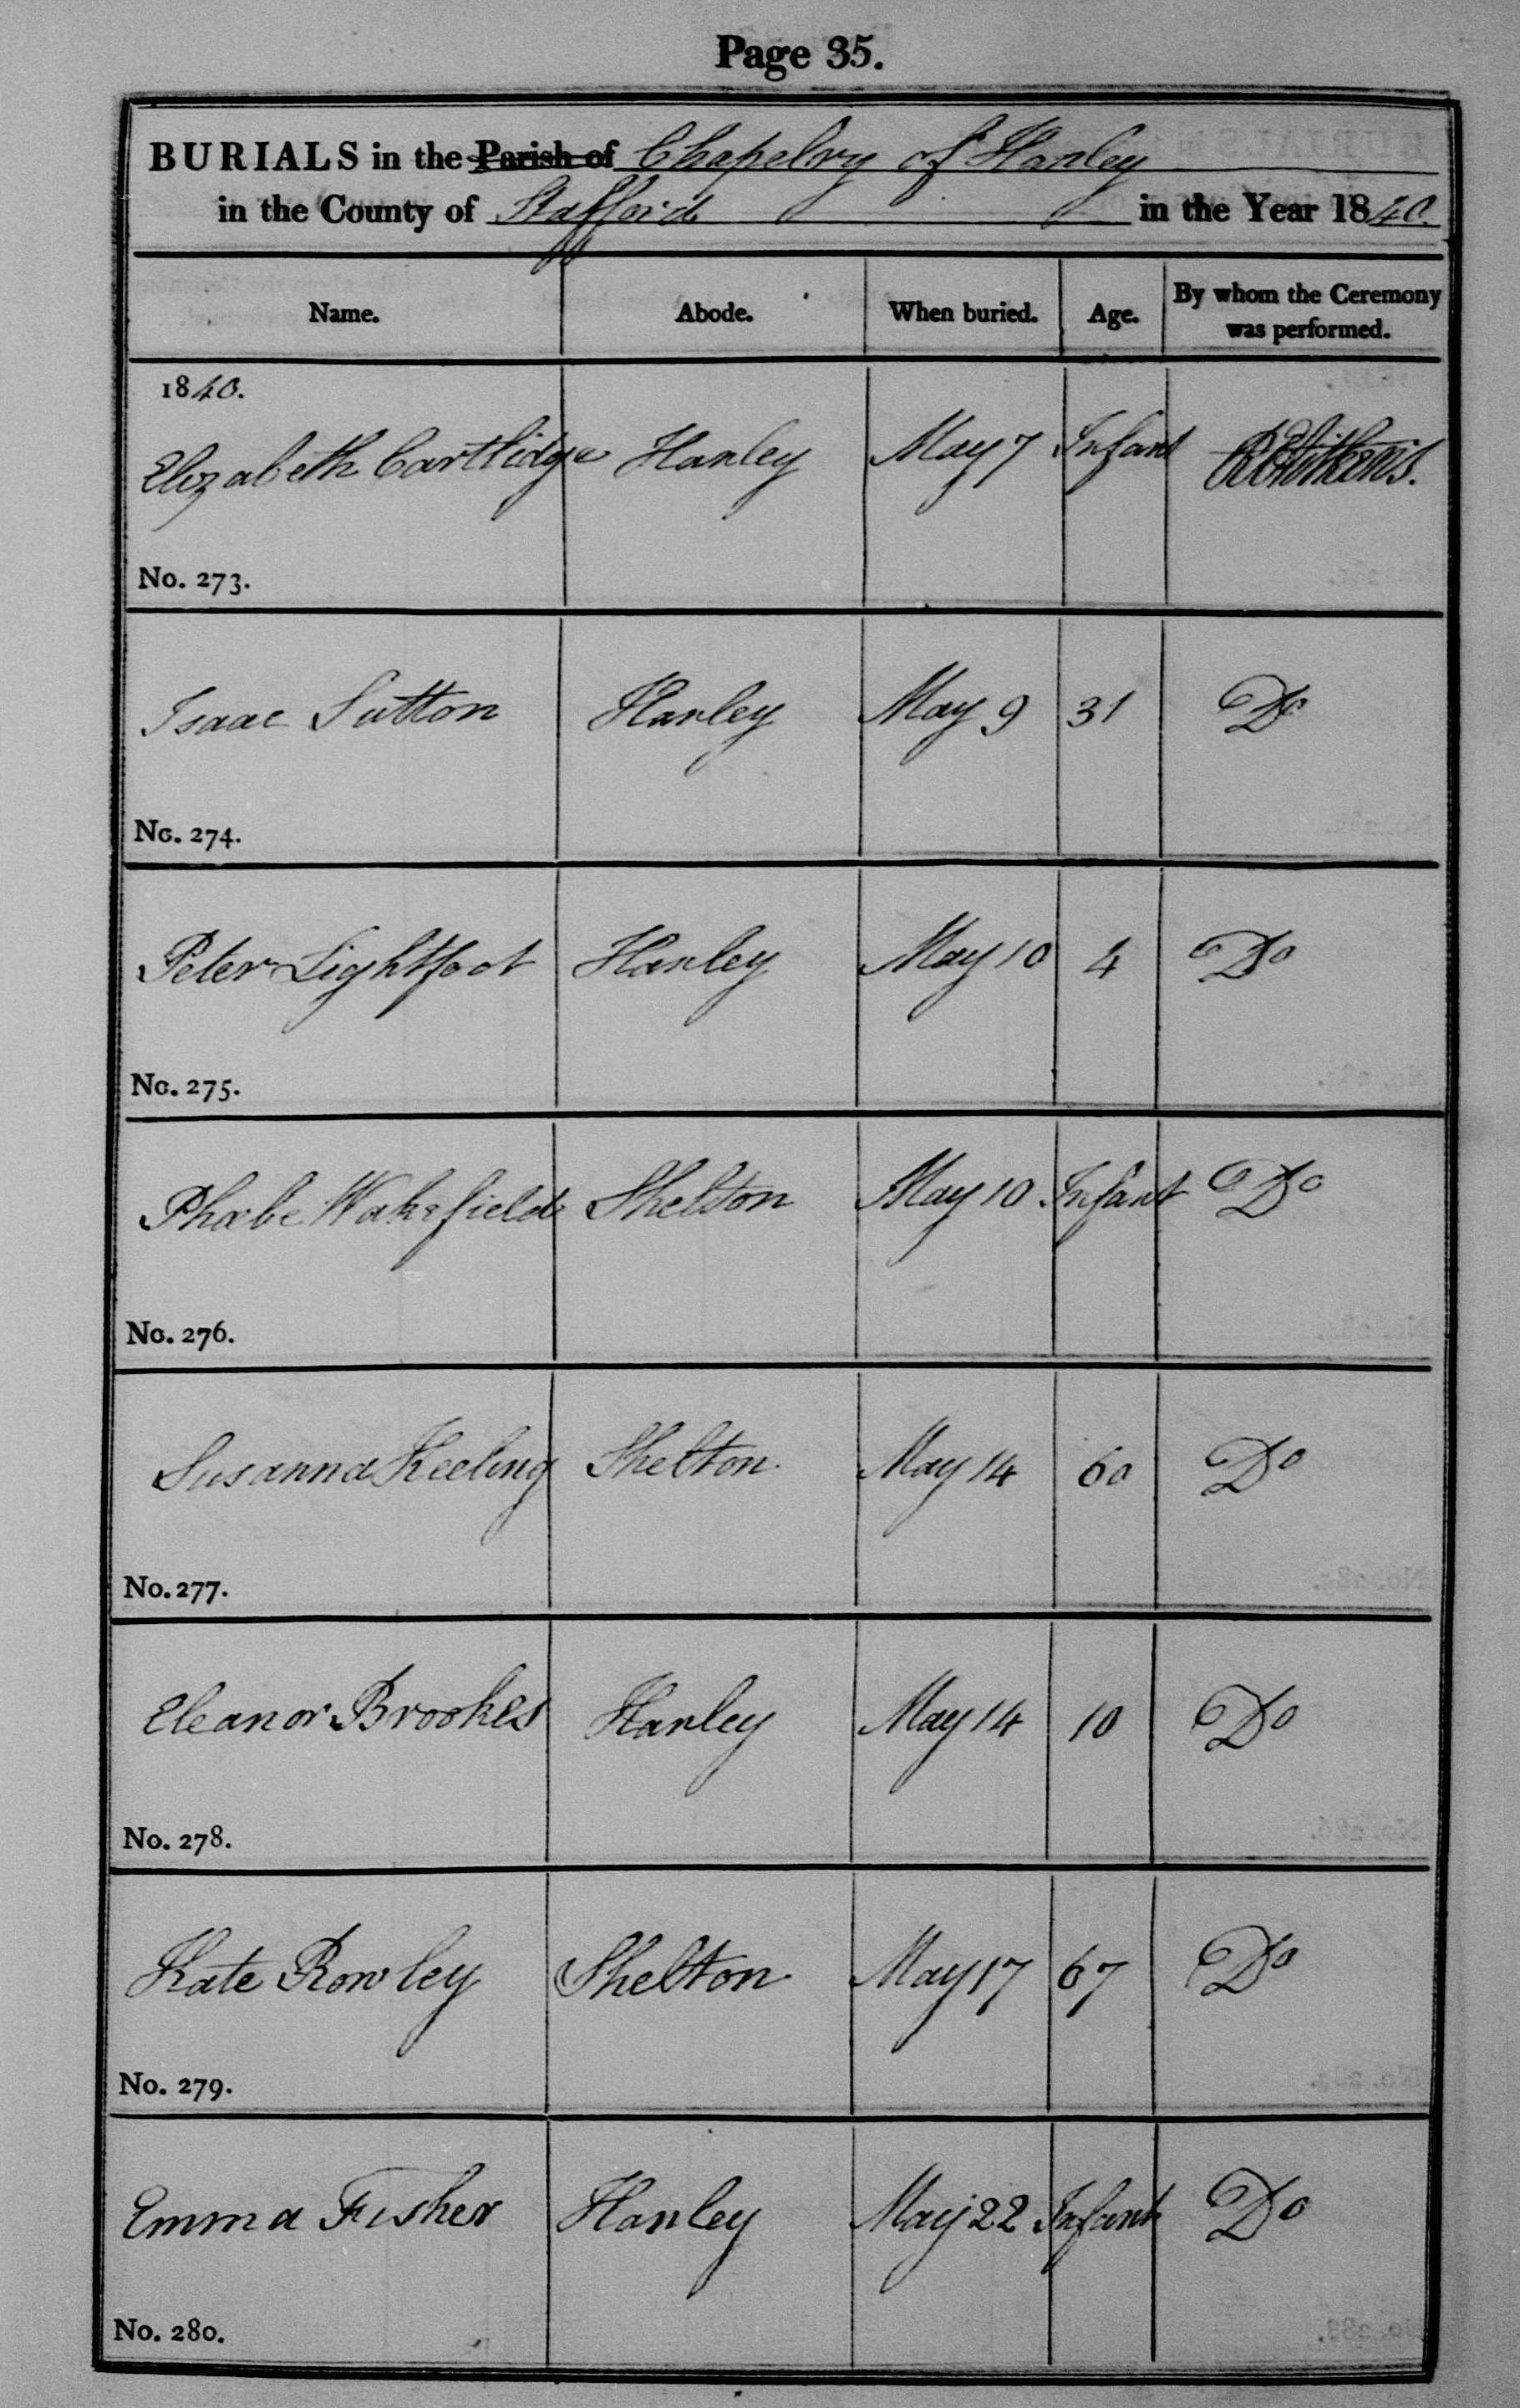 Page 35.
BURIALS in the Parish of Chapelry of Hanley
in the County of Stafford in the Year 1840.
Name. Abode. When buried. Age. By whom the Ceremony was performed.
1840.
Elizabeth Cartlidge Hanley May 7 Infant
No. 273.
Isaac Sutton Hanley May 9 31 Do
No. 274.
Peter Lightfoot Hanley May 10 4 Do
No. 275.
Phœbe Wakefield Shelton May 10 Infant Do
No. 276.
Susanna Keeling Shelton May 14 60 Do
No. 277.
Eleanor Brookes Hanley May 14 10 Do
No. 278.
Kate Rowley Shelton May 17 67 Do
No. 279.
Emma Fisher Hanley May 22 Infant Do
No. 280.